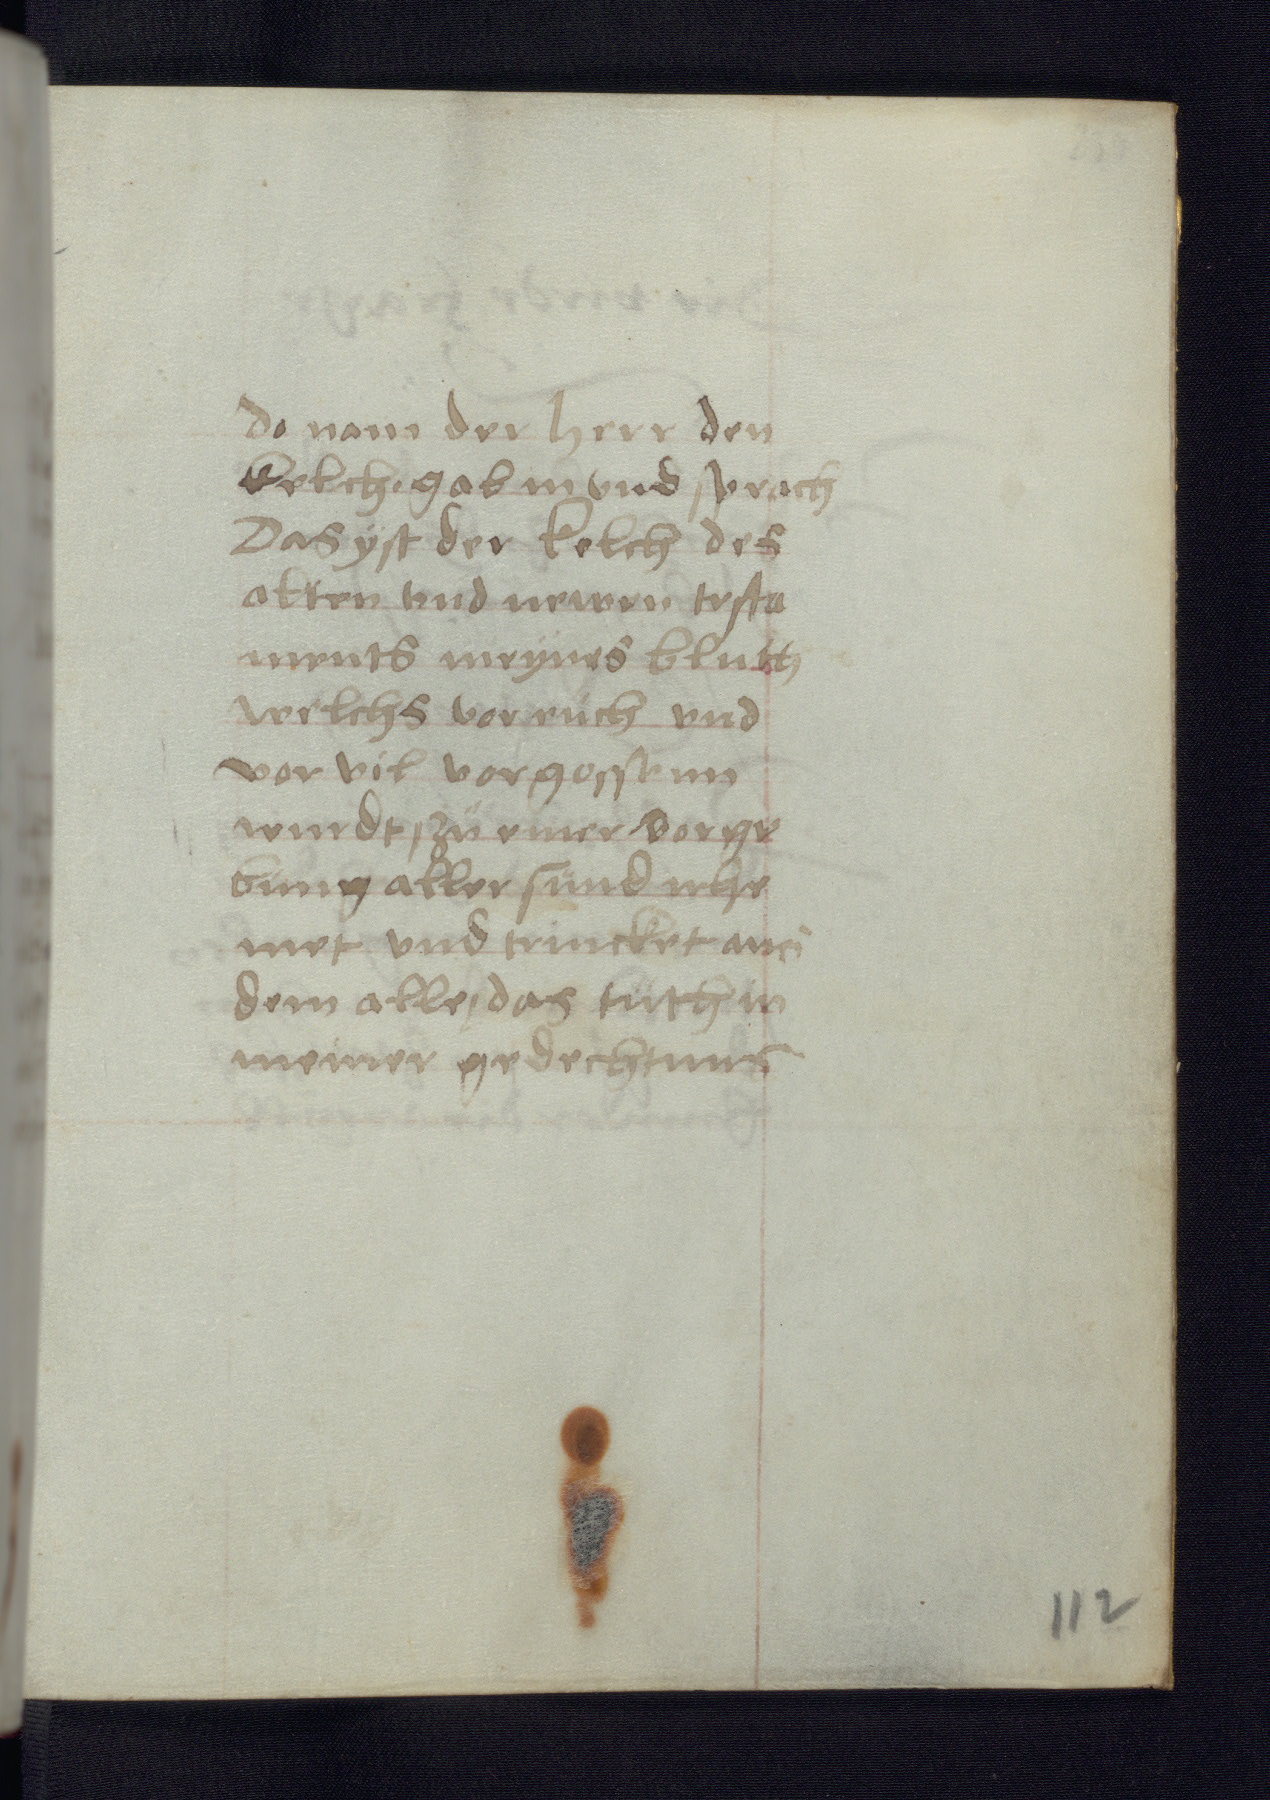 Do nam der herr den
kelch. gab in vnd sprach
Das yst der kelch des
alten vnd newen testa
ments meynes blutth
welchs vor euch vnd
vor vil vorgossenn
wurdt, zu einer vorge
bung aller sund nhe
met vnd trincket aus
dem alle, das tuth in
meiner gedechtnus
112